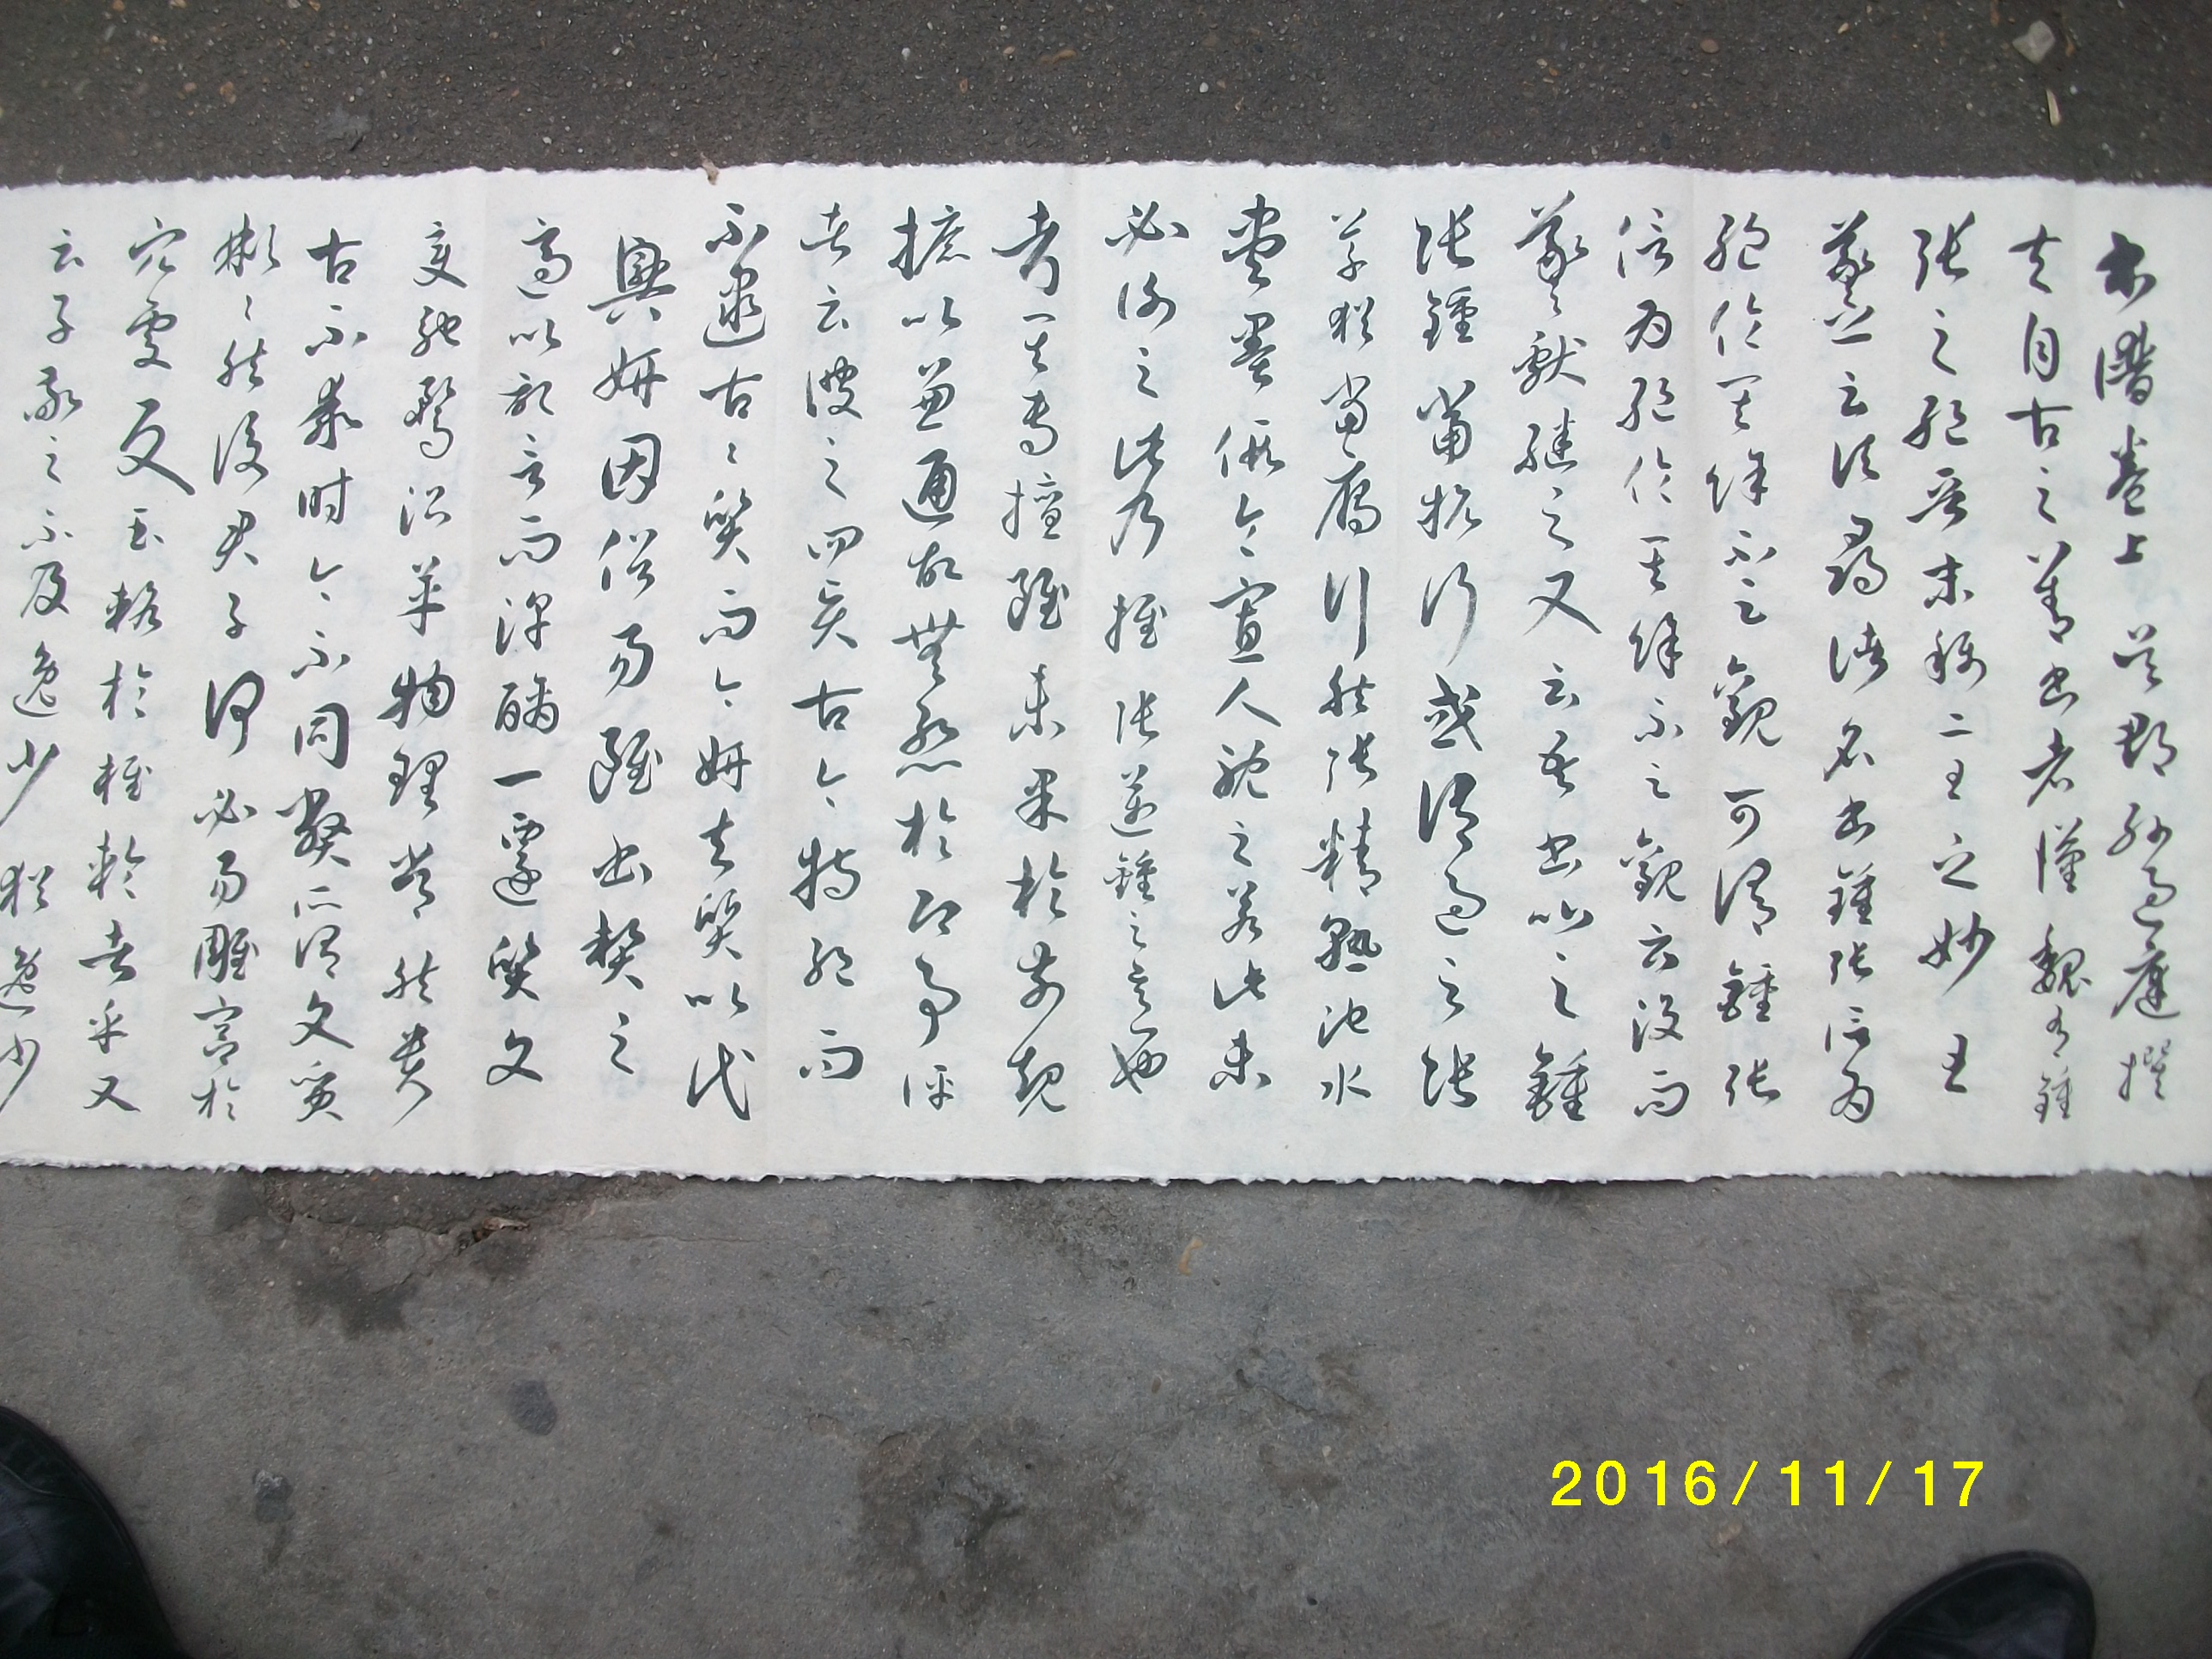 書譜卷上 吳郡孫過庭撰
夫自古之善書者漢魏有鍾
張之絕晉末稱二王之妙王
羲之云頃尋諸名書鍾張信為
絕倫其餘不足觀可謂鍾張
信為絕倫其餘不足觀云沒而
羲獻繼之又云吾書比之鍾
張鍾當抗行或謂過之張
草猶當鴈行然張精熟池水
盡墨假令寡人耽之若此未
必謝之此乃推張邁鍾之意也
考其專擅雖未果於前規
摭以兼通故無慙於即事評
者云彼之四賢古今特絕而
不逮古〻質而今妍夫質以代
興妍因俗易雖書契之
適以記言而淳醨一遷質文
變馳騖沿革物理常然貴
古不乖時今不同弊所謂文質
彬〻然後君子何必易雕宮於
穴處反玉輅於椎輪者乎又
云子敬之不及逸少猶逸少
2016/11/17